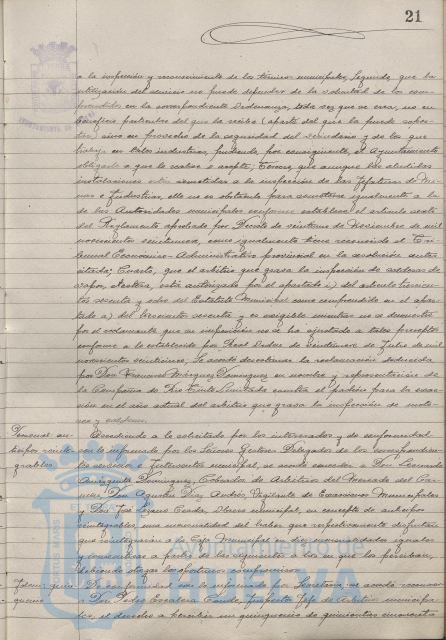 21
a la inspección y reconocimiento de los técnicos municipales; Segundo, que la
utilización del servicio no puede depender de la voluntad de los com-
prendidos en la correspondiente Ordenanza, toda vez que se crea, no en
beneficio particular del que lo recibe (aparte del que le puede repor-
tar) sino en provecho de la seguridad del vecindario y de los que
trabajan en tales industrias, pudiendo, por consiguiente, el Ayuntamiento
obligarle a que lo reciba o acepte; Tercero, que aunque las aludidas
instalaciones estén sometidas a la inspección de las Jefaturas de Mi-
nas e Industrias, ello no es obstáculo para someterse igualmente a la
de las Autoridades municipales conforme establece el artículo
del Reglamento aprobado por Decreto de veintiuno de Noviembre de mil
novecientos veintinueve, como igualmente tiene reconocido el Tri-
bunal Económico-Administrativo provincial en la resolución antes
citada; Cuarto, que el arbitrio que grava la inspección de calderas de
vapor, motores, está autorizado por el apartado del artículo trescien-
tos sesenta y ocho del Estatuto Municipal como comprendido en el apar-
tado a) del trescientos sesenta y es exigible mientras no se demuestre
por el reclamante que su imposición no se ha ajustado a tales preceptos
conforme a lo establecido por Real Orden de veintinueve de Julio de mil
novecientos veinticinco, se acordó desestimar la reclamación deducida
por Don Francisco Márquez Domínguez en nombre y representación de
la Compañía de Rio Tinto Limitada contra el padrón para la exac-
ción en el año actual del arbitrio que grava la inspección de moto-
res y calderas.
Personal: an-
ticipos reinte-
grables.
Accediendo a lo solicitado por los interesados y de conformidad
con lo informado por los Señores Gestores Delegados de los correspondien-
tes servicios e Interventor municipal, se acordó conceder a Don Leonardo
Domínguez, Cobrador de Arbitrios del Mercado del Car-
men, Don Agustín Díaz Andrés, Vigilante de Exacciones Municipales
y Don José Lozano Conde, Obrero municipal, en concepto de anticipo
reintegrable, una mensualidad del haber que respectivamente disfrutan
que reintegrarán a la Caja Municipal en diez mensualidades iguales
y consecutivas a partir de la siguiente a la en que la perciban,
debiendo otorgar los oportunos compromisos.
Idem: quin-
quenio
De conformidad con lo informado por Secretaría, se acordó recono-
cer a Don Pedro Escalera Conde, Inspector Jefe de Arbitrios municipa-
les, el derecho a percibir un quinquenio de quinientas cincuenta